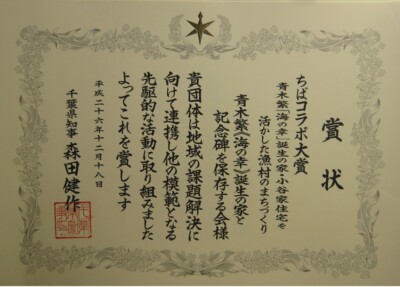 賞状
ちばコラボ大賞
青木繁「海の幸」誕生の家・小谷家住宅を
活かした漁村のまちづくり
青木繁《海の幸》誕生の家と
記念碑を保存する会様
貴団体は地域の課題解決に
向けて連携し他の模範となる
先駆的な活動に取り組みました
よってこれを賞します
平成二十六年十二月十八日
千葉県知事 森田健作